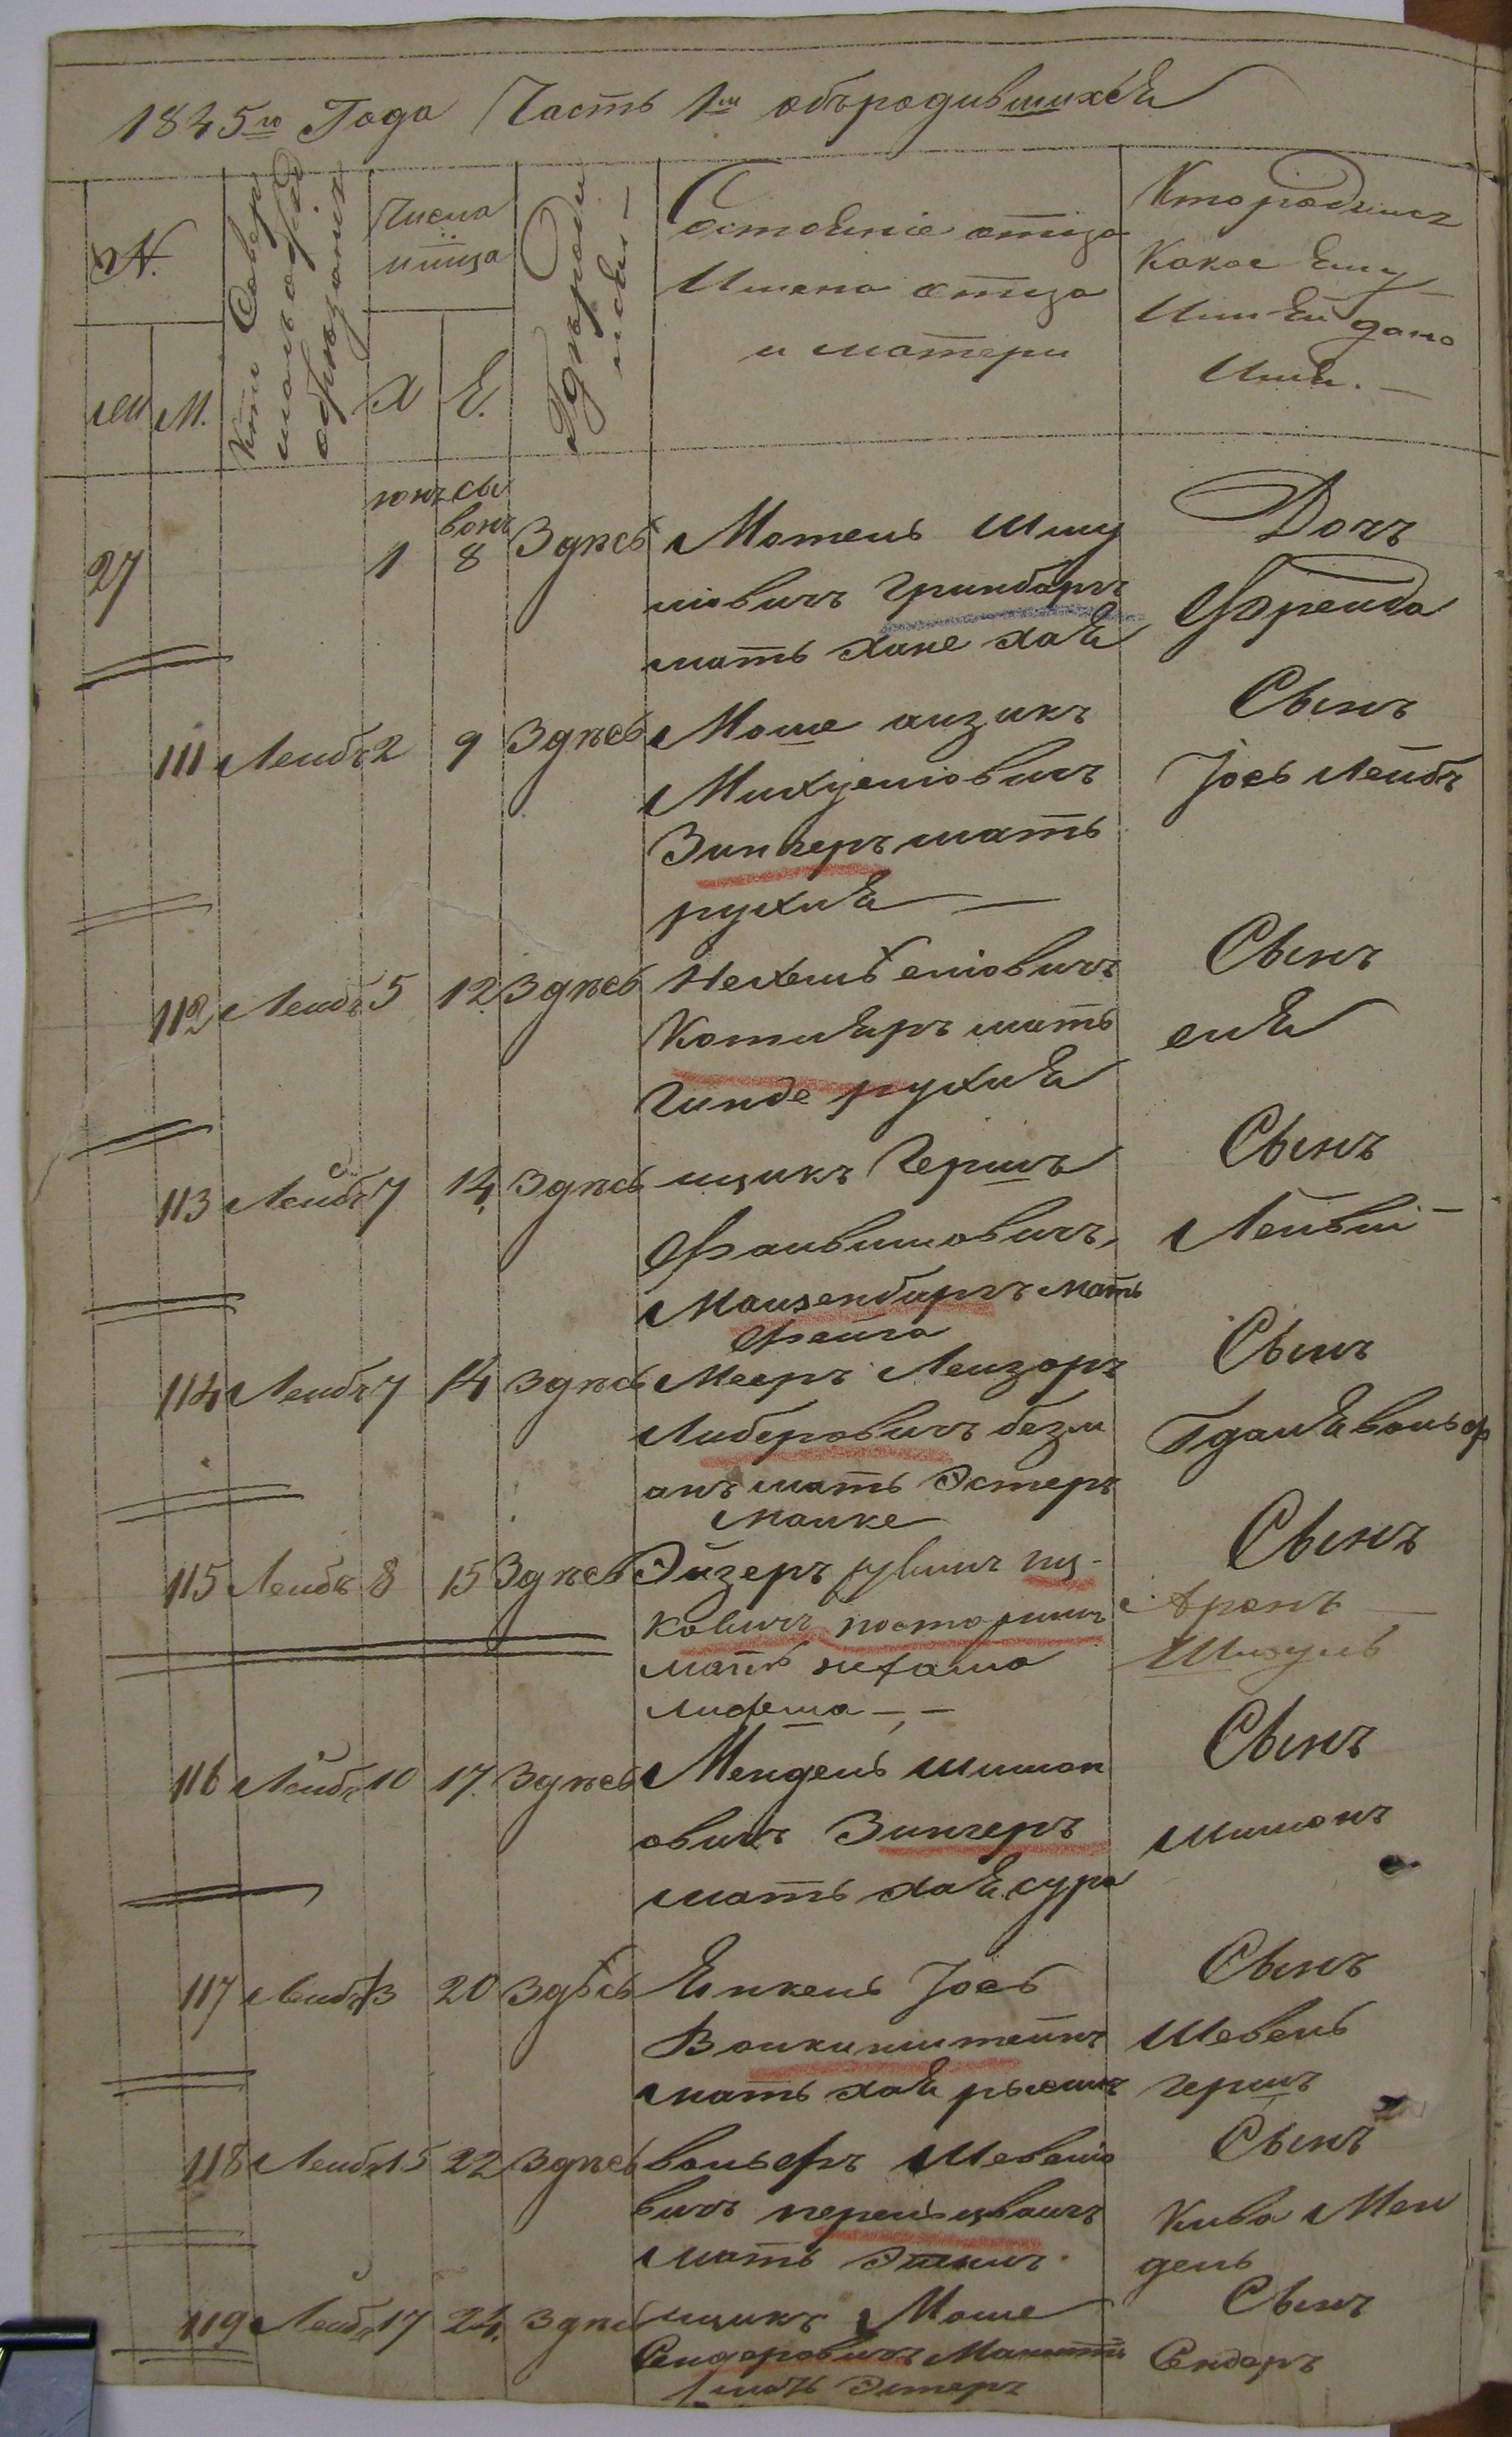 1845го Года Часть 1я объродившихся
N.
Кто Совер
шалъ обрядъ
обрѣзанія
Числа
мѣсяца
Гдѣ роди
лся —
Состояніе отца
Имена отца
и матери
Кто родился
Какое ему
Или ей дано
Имя. —
Же М.
Х Е.
27 1 8 Здѣсь Мотель Шму
ліовичъ Гринбаргъ
мать Хане Хая
Дочъ
Фрейда
111 Лейбъ 2 9 Здѣсь Моше аизикъ
Михуеліовичъ
Зингеръ мать
рухля —
Сынъ
Іось Лейбъ
112 Лейбъ 5 12 Здѣсь Нехемь еліовичъ
Котляръ мать
Гинде рухля
Сынъ
еля
113 Лейбъ 7 14 Здѣсь ицикъ Гершъ
Файвишовичъ
Майзенбаргъ мать
Фейга
Сынъ
Лейвий
114 Лейбъ 7 14 Здѣсь Мееръ Лейзоръ
Либеровичъ безм
анъ мать Эстеръ
Малке
Сынъ
Гдаля вольф
115 Лейбъ 8 15 Здѣсь Эйзеръ рувинъ иц-
ковичъ
мать нехама
Сынъ
Аронъ —
Шмуль
116 Лейбъ 10 17 Здѣсь Мендель шимон
овичъ Зингеръ
мать хая сура
Сынъ
шимонъ
117 Лейбъ 13 20 Здѣсь Янкель Іось
мать хая
Сынъ
Шевель
гершъ
118 Лейбъ 15 22 Здѣсь вольфъ Шевеліо
вичъ перельцвайгъ
мать
Сынъ
Кива Мен
дель
119 Лейбъ 17 24 Здѣсь ицикъ Моше
Сендеровичъ
мать Эстеръ
Сынъ
Сендеръ